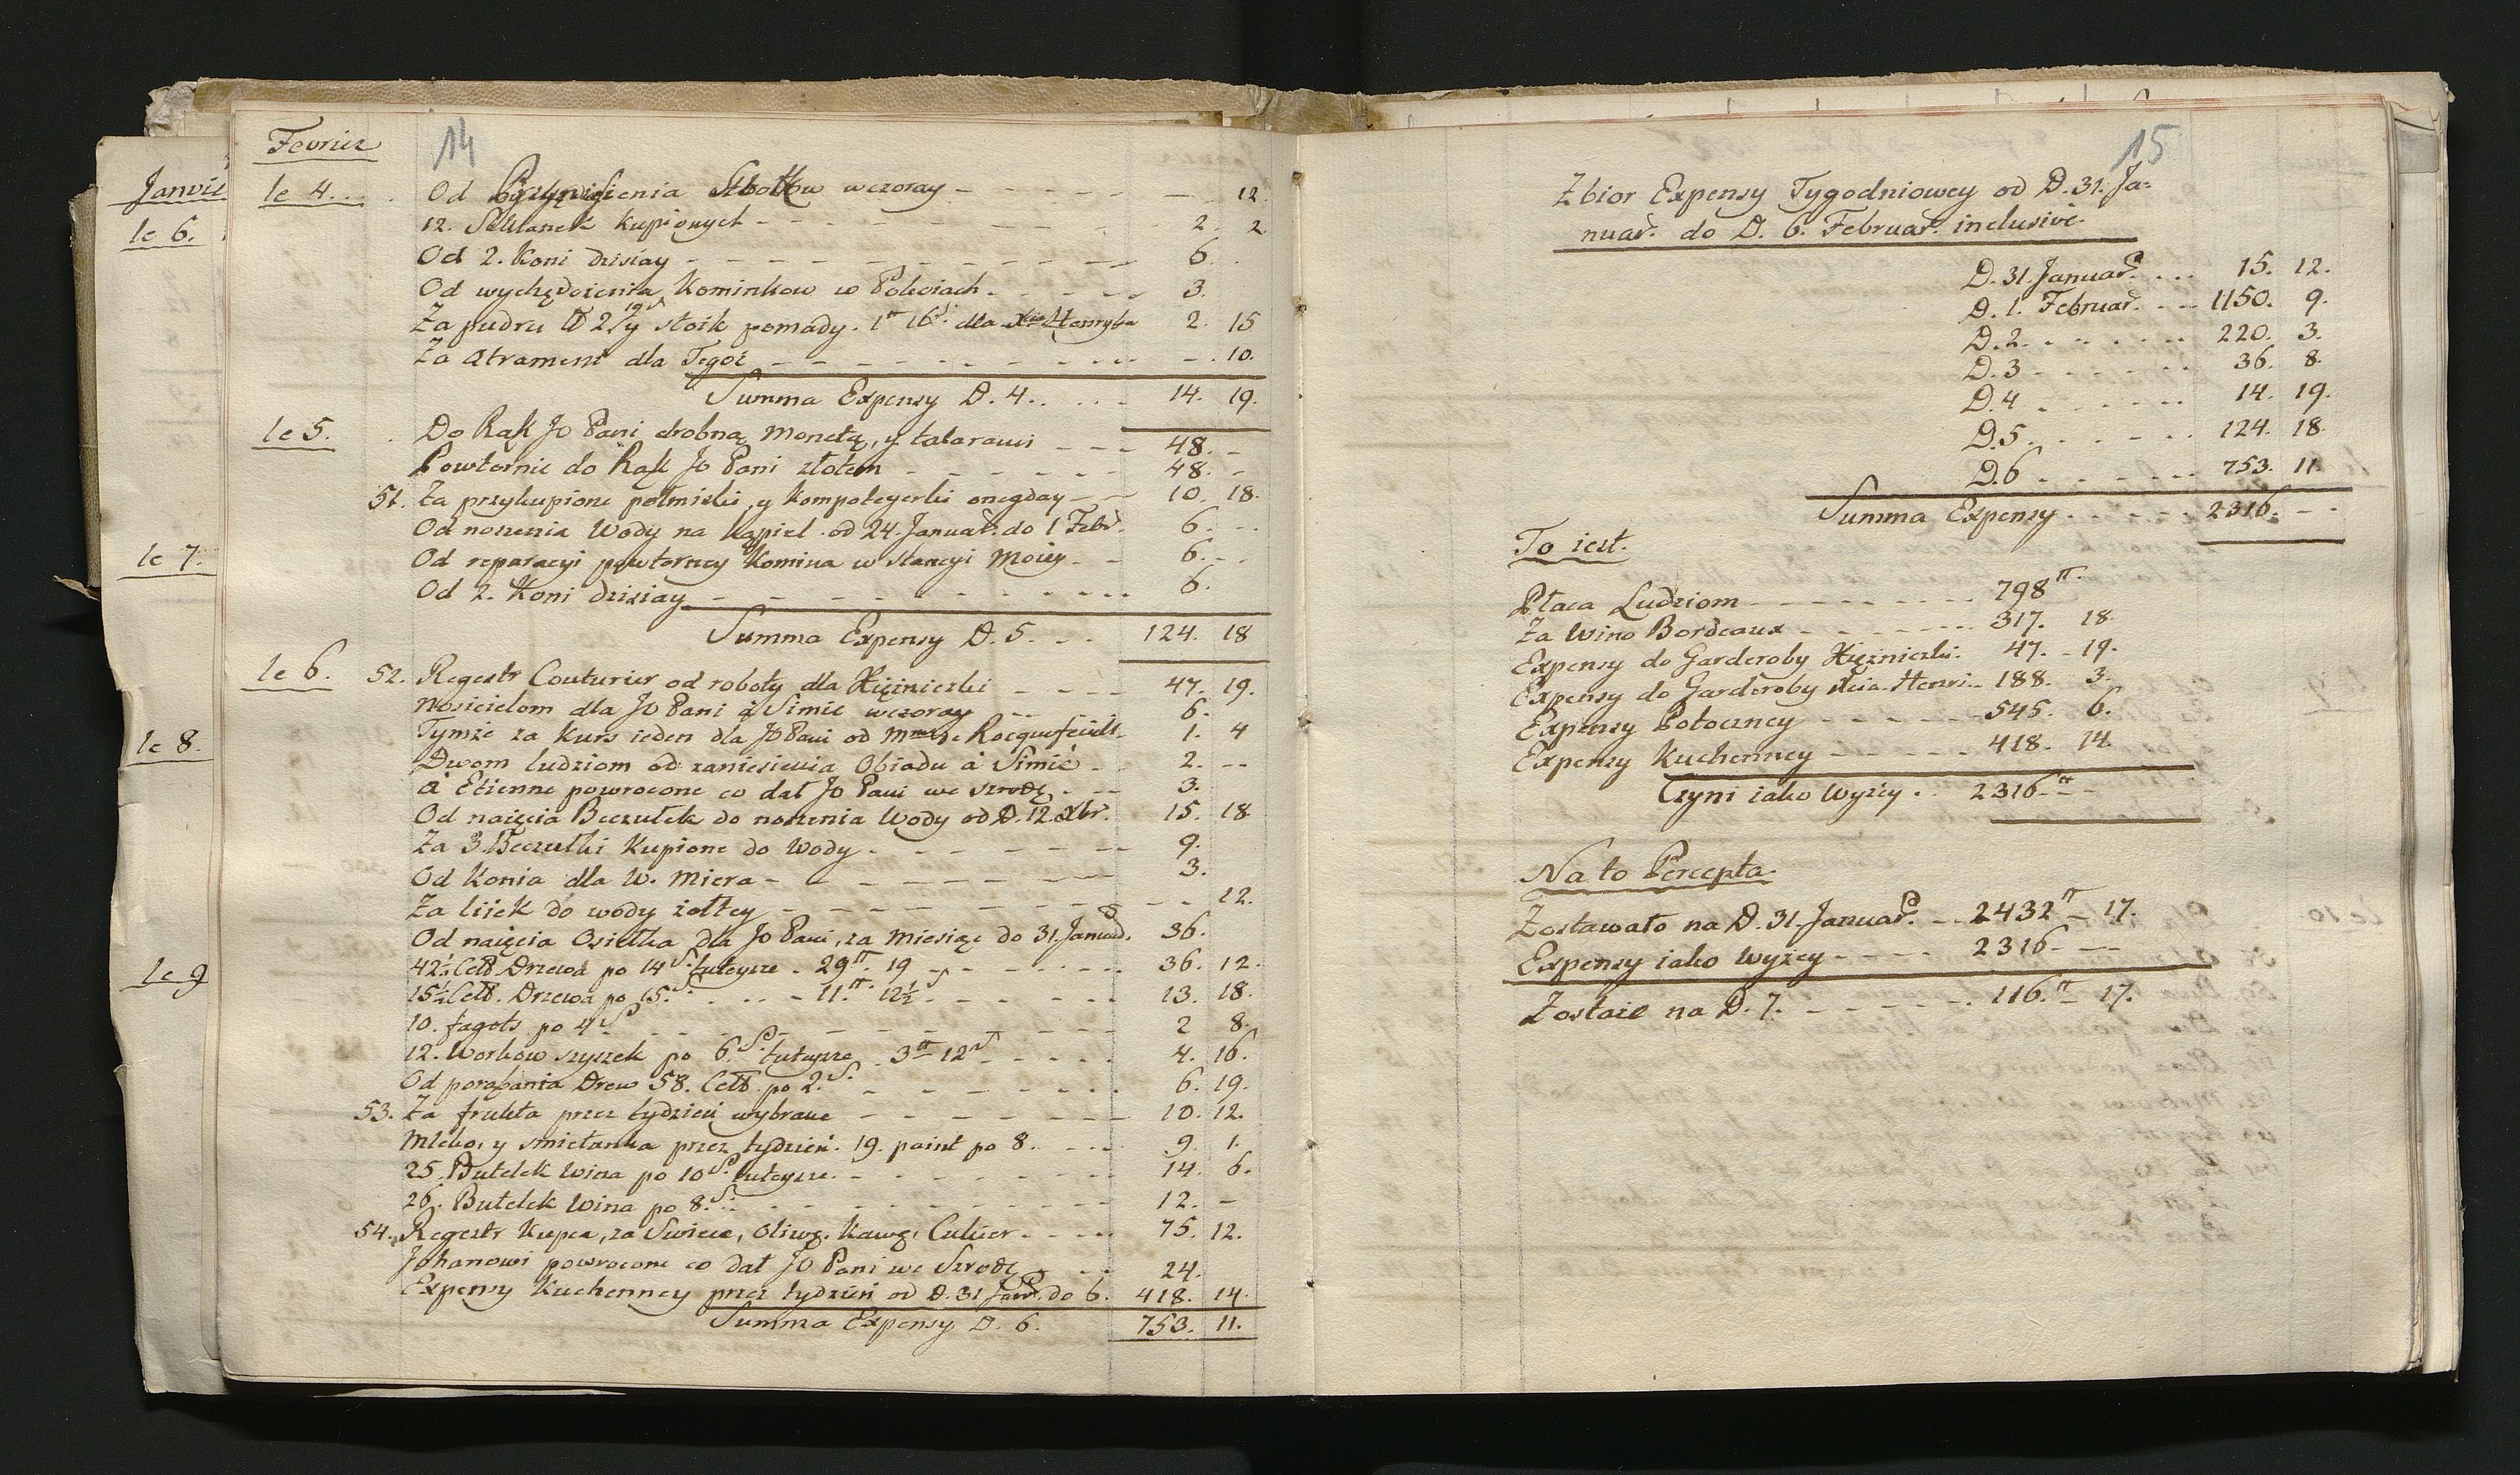 Janvie
le 6.
le 7.
le 8.
le 9
Fevrier
14
le 4... Od Przyniesienia wczoray - - - - 12.
12. Szklanek kupionych - - - - 2. 2
Od 2. Koni dzisiay - - - - 6.
Od wychędożenia Kominkow w Pokoiach - - - 3.
Za pudru 2. 19s y stoik pomady. 1tt 16s. dla Xcia Henryka 2. 15
Za Atrament dla Tegoż - - - - 10.
Summa Expensy D. 4. . . . . 14. 19.
le 5. Do Rąk JO Pani drobną Monetą, y talarami - - - 48. -
Powtornie do Rąk JO Pani złotem - - - - 48. -
51. Za przykupione połmiski, y Kompoteyerki onegday - - 10. 18.
Od noszenia Wody na kąpiel od 24. Januar. do 1 Febr. 6. - -
Od reparacyi powtorney Komina w Stancyi Moiey - - 6. - -
Od 2. Koni dzisiay - - - - 6.
Summa Expensy D. 5. . . 124. 18
le 6. 52. Regestr Couturier od roboty dla Xiężniczki - - - - 47. 19.
Nosicielom dla JO Pani à Simie wczoray - - 6.
Tymże za kurs ieden dla JO Pani od Mme de Rocquefeuille. 1. 4
Dwom ludziom od zaniesienia Obiadu à Simie - 2. --
à Etienne powrocone co dał JO Pani we Szrodę. - - 3.
Od naięcia Beczułek do noszenia Wody od D. 12. Xbr. 15. 18
Za 3 Beczułki Kupione do Wody - - - - 9.
Od Konia dla W. Miera - - - - 3.
Za liiek do wody żołtey - - - - 12.
Od naięcia Osiełka dla JO Pani, za Miesiąc do 31. Januar. 36.
42½ Cetn. Drzewa po 14s. tuteysze . 29tt. 19 - - - - 36. 12.
15½ Cetn. Drzewa po 15s. . . . - 11.tt 12½s. - - - 13. 18.
10. fagots po 4s. - - - - 2 8.
12. Workow szyszek po 6s. tuteysze . 3tt 12s - - - - 4. 16.
Od porąbania Drew 58. Cetn. po 2.s. - - - - 6. 19.
53. Za frukta przez tydzień wybrane - - - - 10. 12.
Mleko, y smietanka przez tydzień. 19. paint po 8. - - - 9. 1.
25. Butelek Wina po 10s. tuteysze. - - - - 14. 6.
26. Butelek Wina po 8.s. - - - - 12. -
54. Regestr Kupca, za Swiece, Oliwę, Kawę, Cukier. - - - - 75. 12.
Johanowi powrocone co dał JO Pani we Szrodę - - - 24.
Expensy Kuchenney przez tydzień od D. 31 Janu. do 6. 418. 14.
Summa Expensy D. 6. 753. 11.
15
Zbior Expensy Tygodniowey od D. 31. Ja=
nuar. do D. 6. Februar. inclusive.
D. 31. Januar. . . . 15. 12.
D. 1. Februar. . . . 1150. 9.
D. 2. . . . . . . 220. 3.
D. 3 - . . . . . 36. 8.
D. 4 . . . . . . 14. 19.
D. 5. . . . . . 124. 18.
D. 6 . . . . . . 753. 11.
Summa Expensy . . . . . 2316. - -
To iest.
Płaca Ludziom - - - - 798tt.
Za Wino Bordeaux - - - - 317. 18.
Expensy do Garderoby Xiężniczki. 47. - 19.
Expensy do Garderoby Xcia. Henri.. 188. 3.
Expensy Potoczney - - - - 545. 6.
Expensy Kuchenney - - - - 418. 14.
Czyni iako Wyżey . . 2316tt - -
Na to Percepta.
Zostawało na D. 31. Januar. . - 2432tt - 17.
Expensy iako wyżey - - - - 2316 - --
Zostaie na D. 7. - - - - 116.tt - 17.